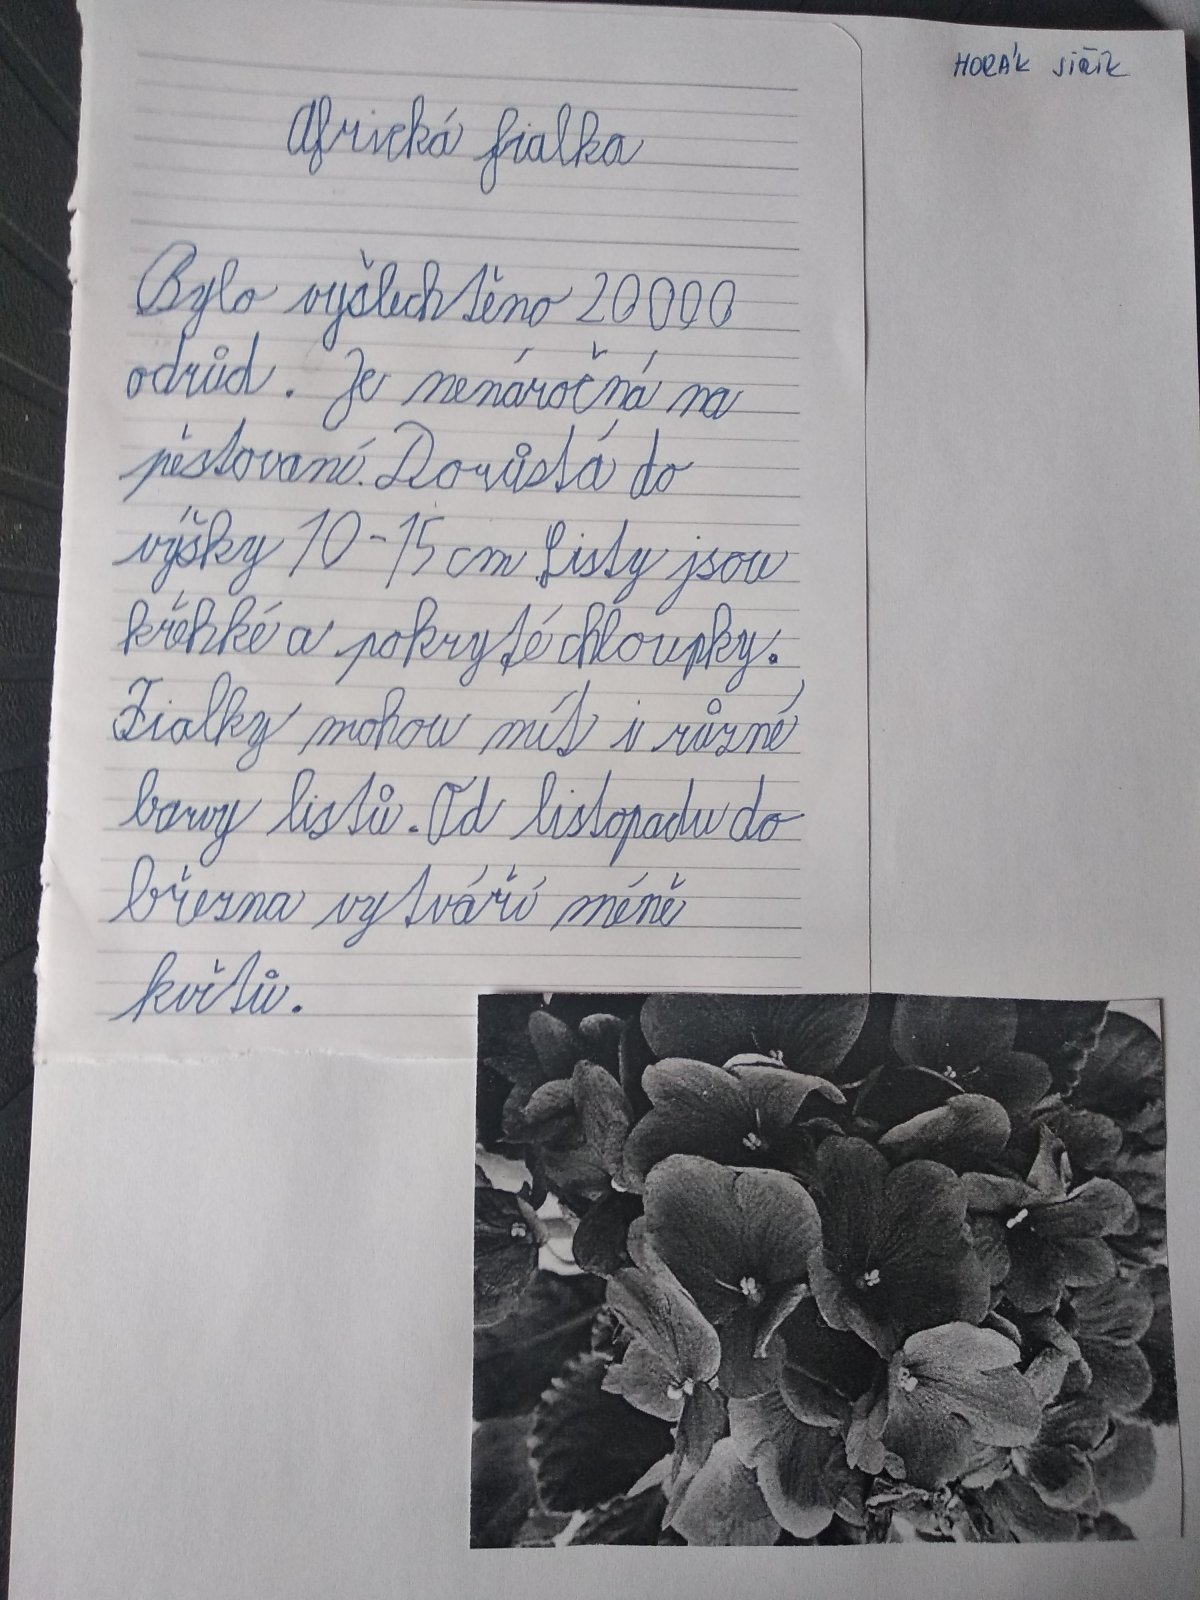 HORÁK JIŘÍK
Africká fialka
Bylo vyšlechtěno 20000
odrůd. Je nenáročná na
pěstovaní. Dorůstá do
výšky 10-15 cm Listy jsou
křehké a pokryté chloupky.
Fialky mohou mít i různé
barvy listů. Od listopadu do
března vytváří méně
květů.